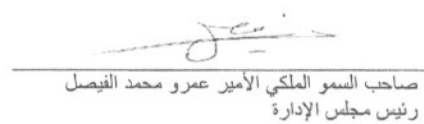 صاحب السمو الملكي الأمير عمرو محمد الفيصل
رئيس مجلس الإدارة